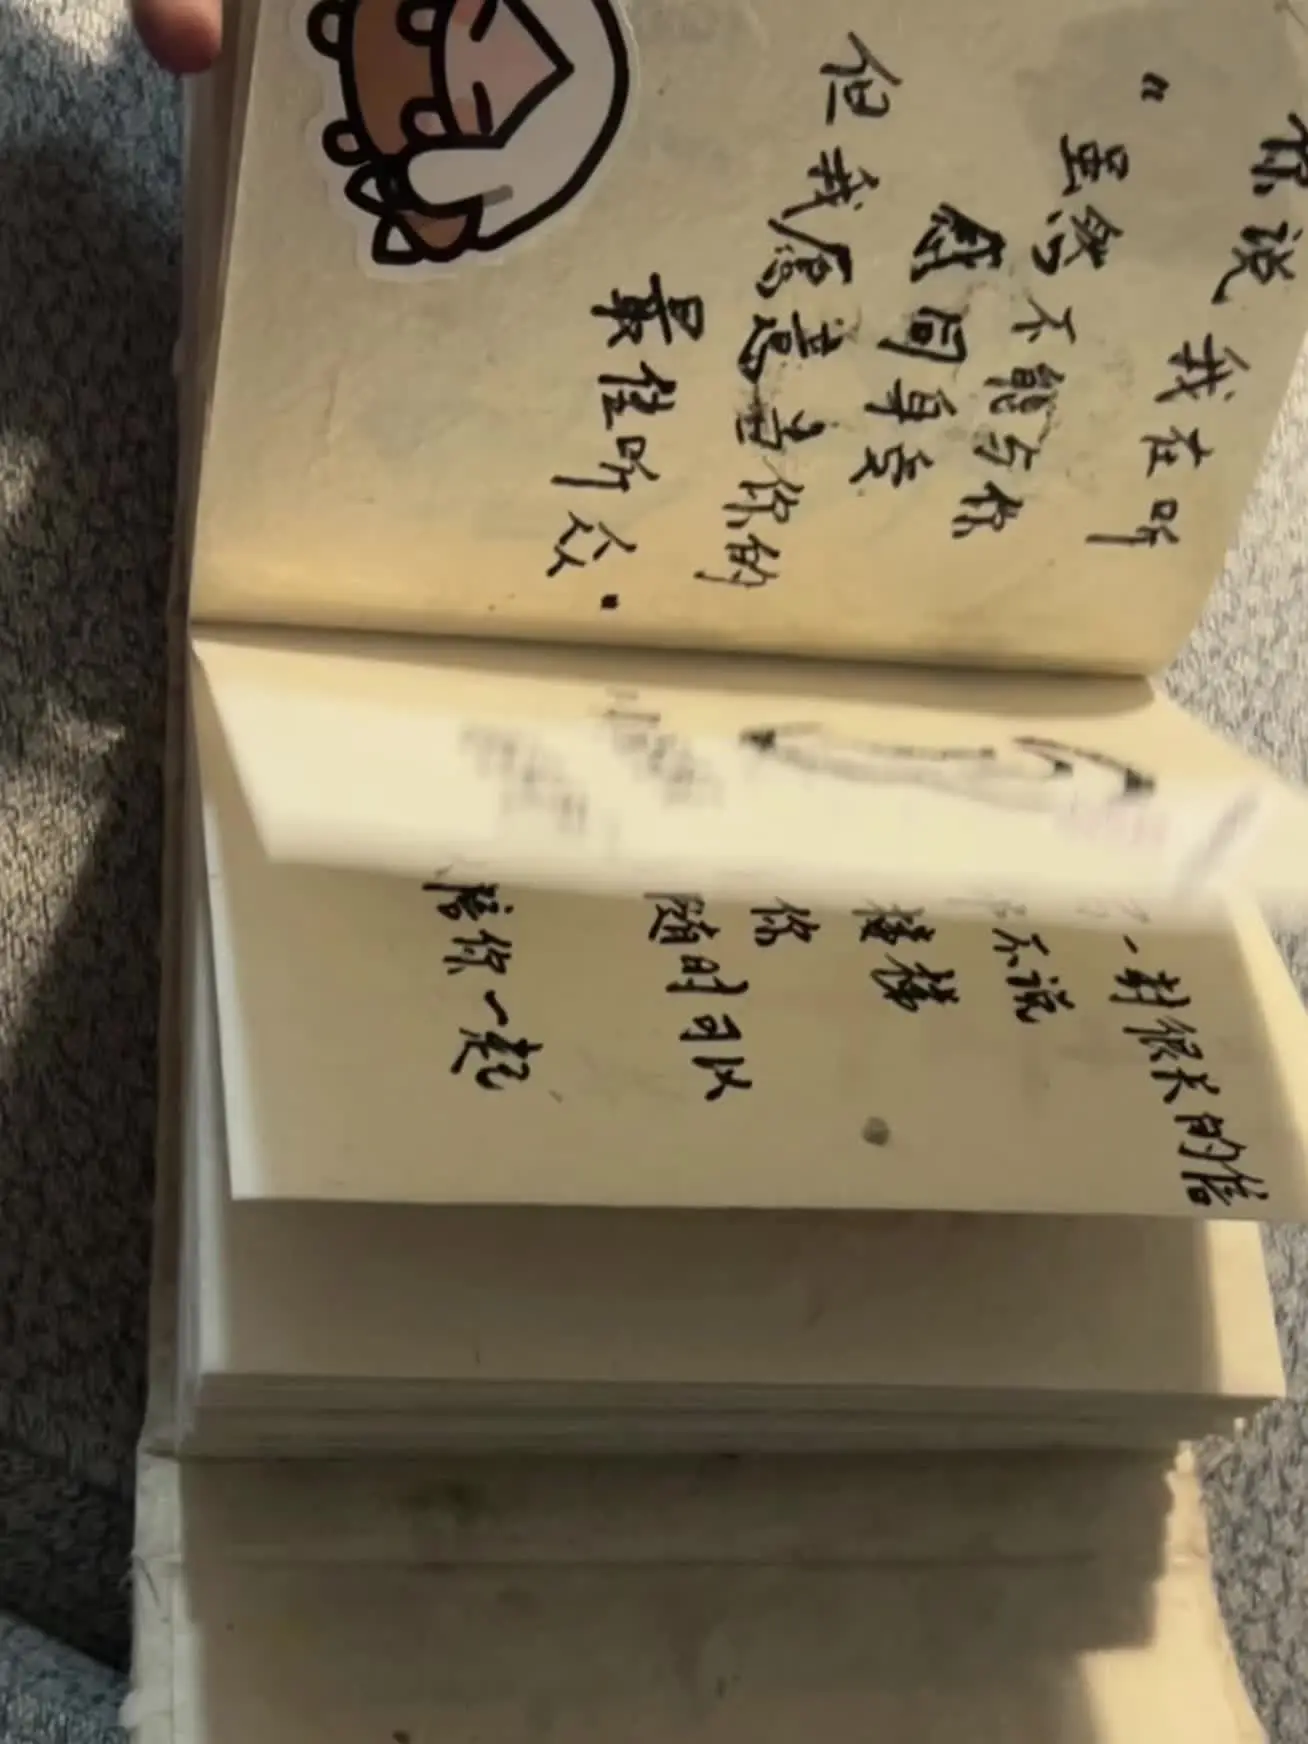 你说 我在听
“虽然不能与你
感同身受
但我愿意当你的
最佳听众”
一封很长的信
不说
你
随时可以
陪你一起